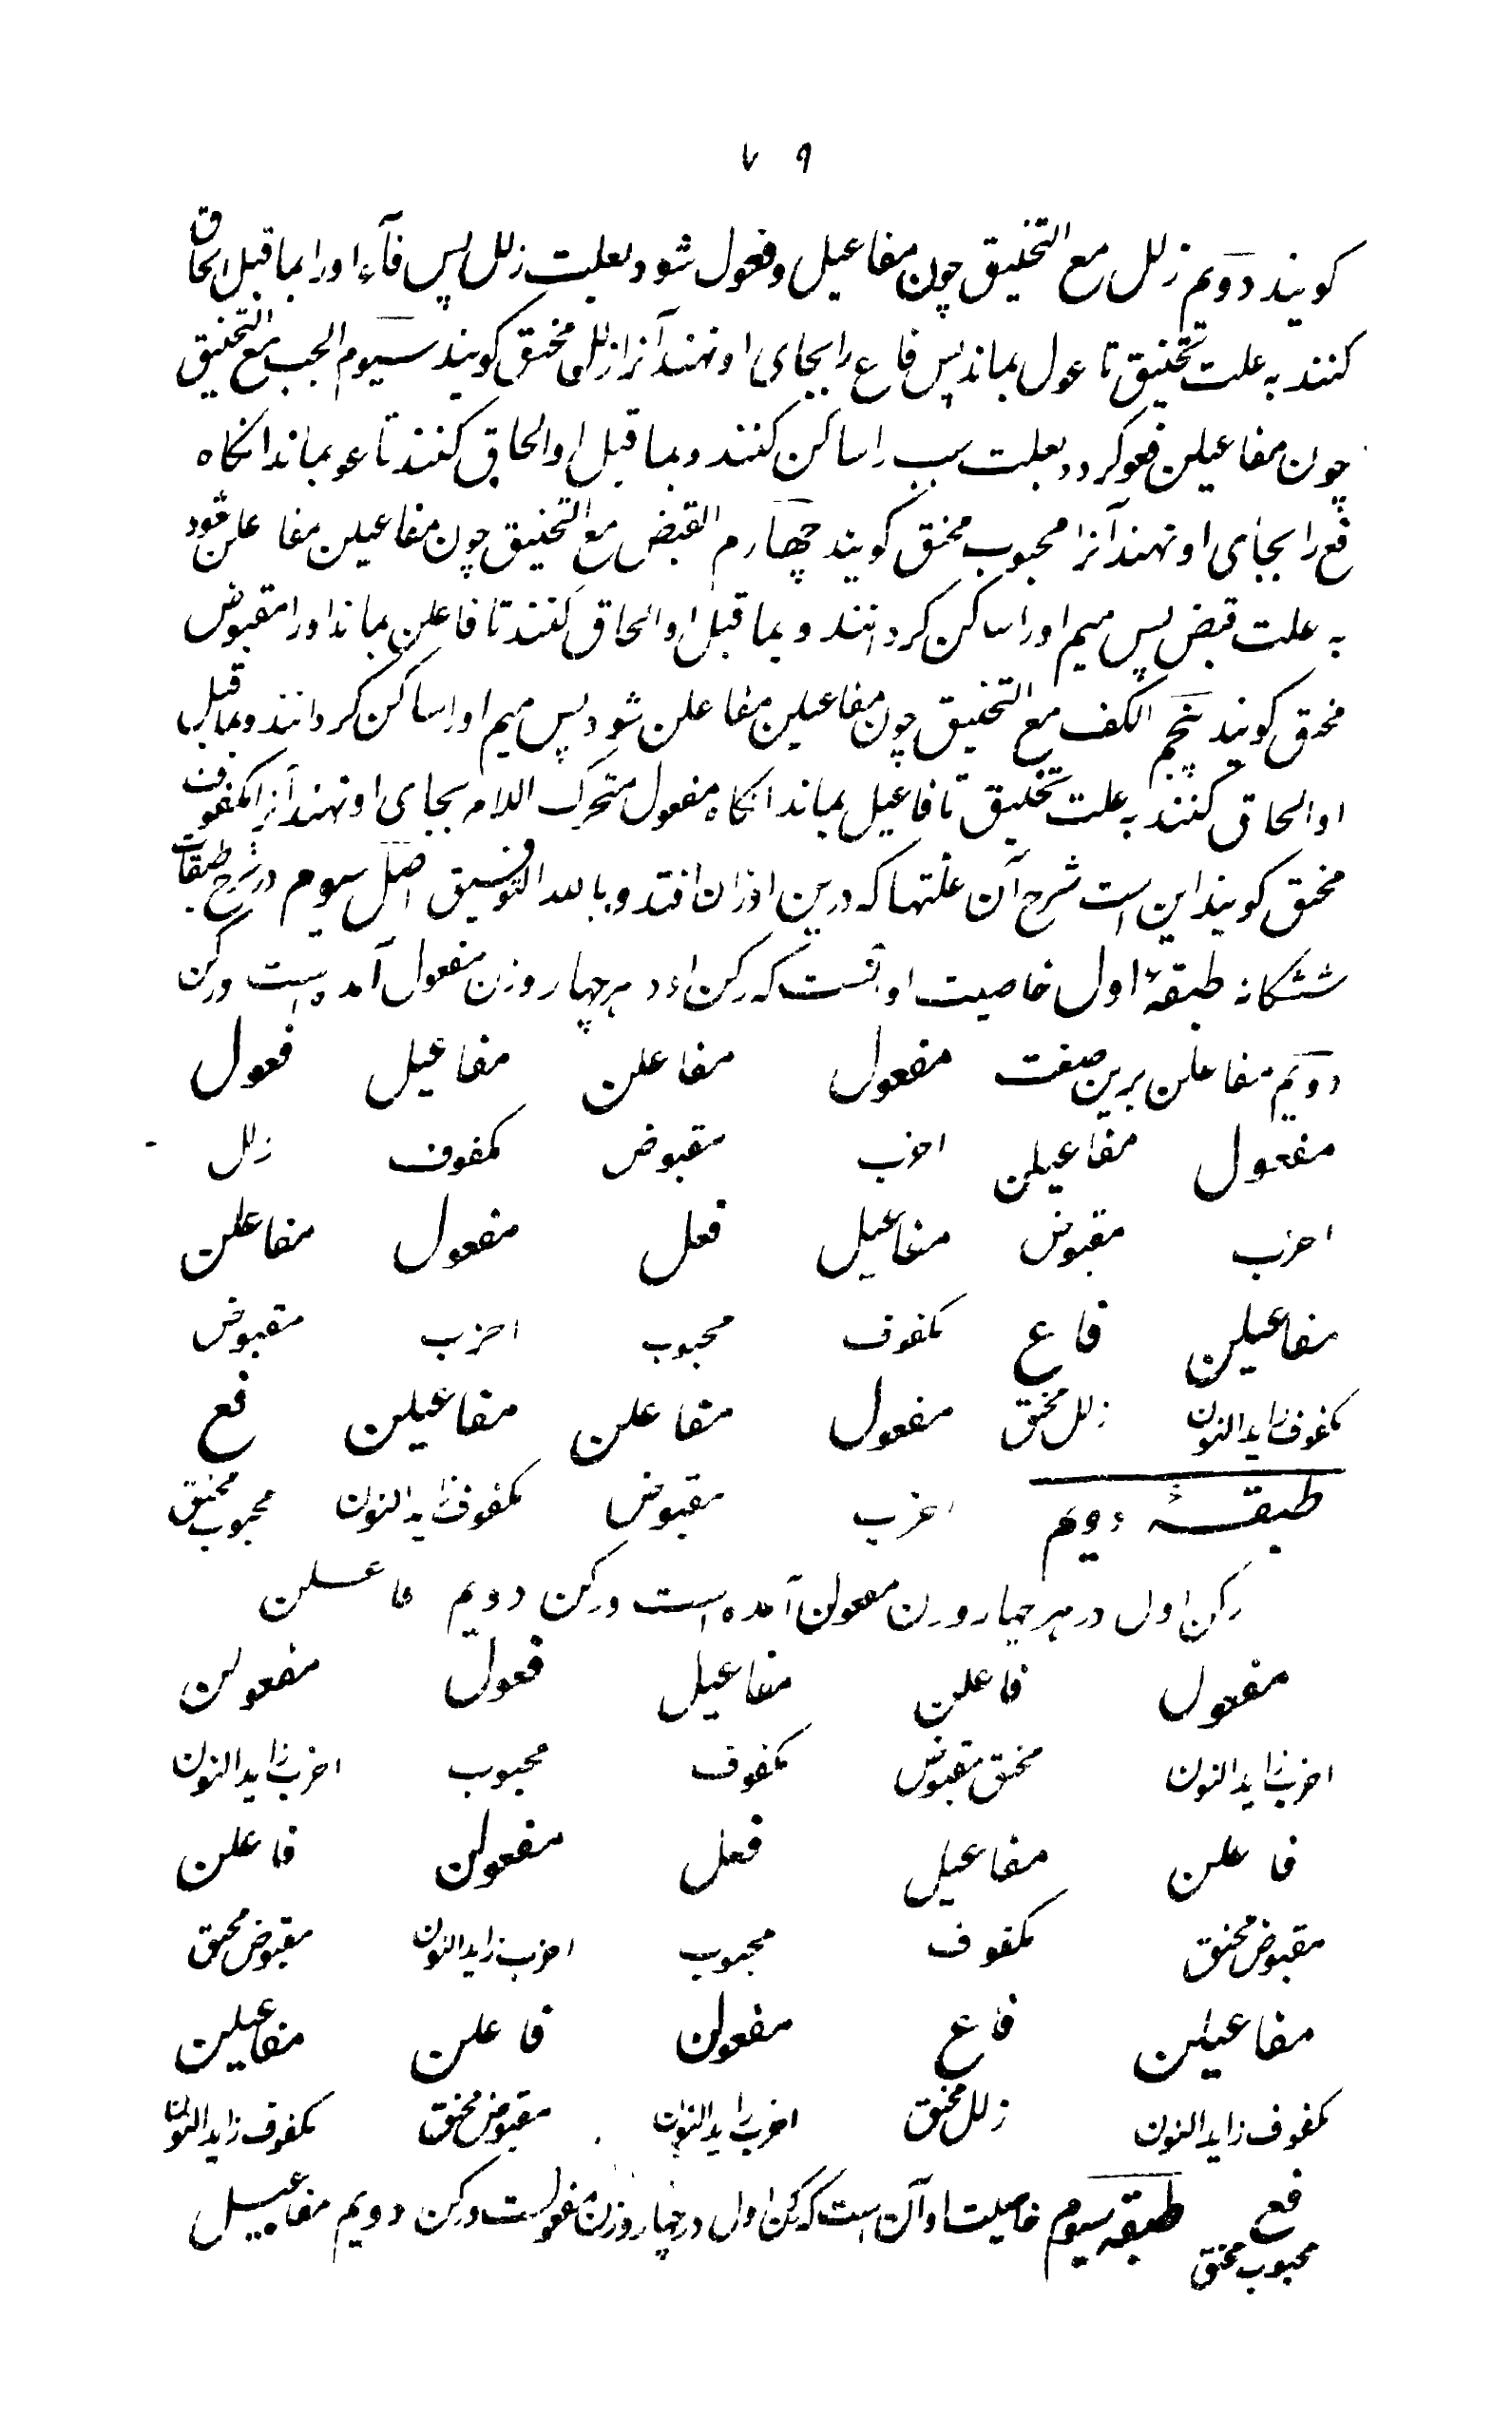 ۷۹
کویند دویم زلل مع التخنیق چون مفاعیل و فعول شود بعلت زلل پس فآء اورا بما قبل الحاق
کنند به علت تخنیق تا عول بماند پس فاع را بجای او نهند آنرا زلل مخنق کویند سیوم الجب مع التخنیق
چون مفاعیلن فعو کردد بعلت جب را ساکن کنند و بما قبل او الحاق کنند تا عو بماند انکاه
فع را بجای او نهند آنرا مجبوب مخنق کویند چهارم القبض مع التخنیق چون مفاعیلن مفاعلن شود
به علت قبض پس میم اورا ساکن کردانند و بما قبل او الحاق کنند تا فاعلن بماند اورا مقبوض
مخنق کویند پنجم الکف مع التخنیق چون مفاعیلن مفاعلن شود پس میم اورا ساکن کردانند و بماقبل
او الحاق کنند به علت تخنیق تا فاعیل بماند انکاه مفعول متحرک اللام بجای او نهند آنرا مکفوف
مخنق کویند این است شرح آن علتها که درین اوزان افتد و بالله التوفیق اصل سیوم در شرح طبقات
ششکانه طبقهٔ اول خاصیت او آنست که رکن اول در هر چهار وزن مفعول آمده است ورکن
دویم مفاعلن برین صفت مفعول مفاعلن مفاعیل فعول
مفعول مفاعیلن اخرب مقبوض مکفوف زلل
اخرب مقبوض مفاعیل فعل مفعول مفاعلن
مفاعیلن فاع مکفوف مجبوب اخرب مقبوض
مکفوف زاید النون زلل مخنق مفعول مفاعلن مفاعیلن فع
طبقهٔ دویم اخرب مقبوض مکفوف زاید النون مجبوب مخنق
رکن اول در هر چهار وزن مفعولن آمده است ورکن دویم فاعلن
مفعول فاعلن مفاعیل فعول مفعولن
اخرب زاید النون مخنق مقبوض مکفوف مجبوب اخرب زاید النون
فاعلن مفاعیل فعل مفعولن فاعلن
مقبوض مخنق مکفوف مجبوب اخرب زاید النون مقبوض مخنق
مفاعیلن فاع مفعولن فاعلن مفاعیلن
مکفوف زاید النون زلل مخنق اخرب زاید النون مقبوض مخنق مکفوف زاید النون
فع طبقه سیوم خاصیت او آن است که رکن اول در چهار وزن مفعولست ورکن دویم مفاعیل
مجبوب مخنق